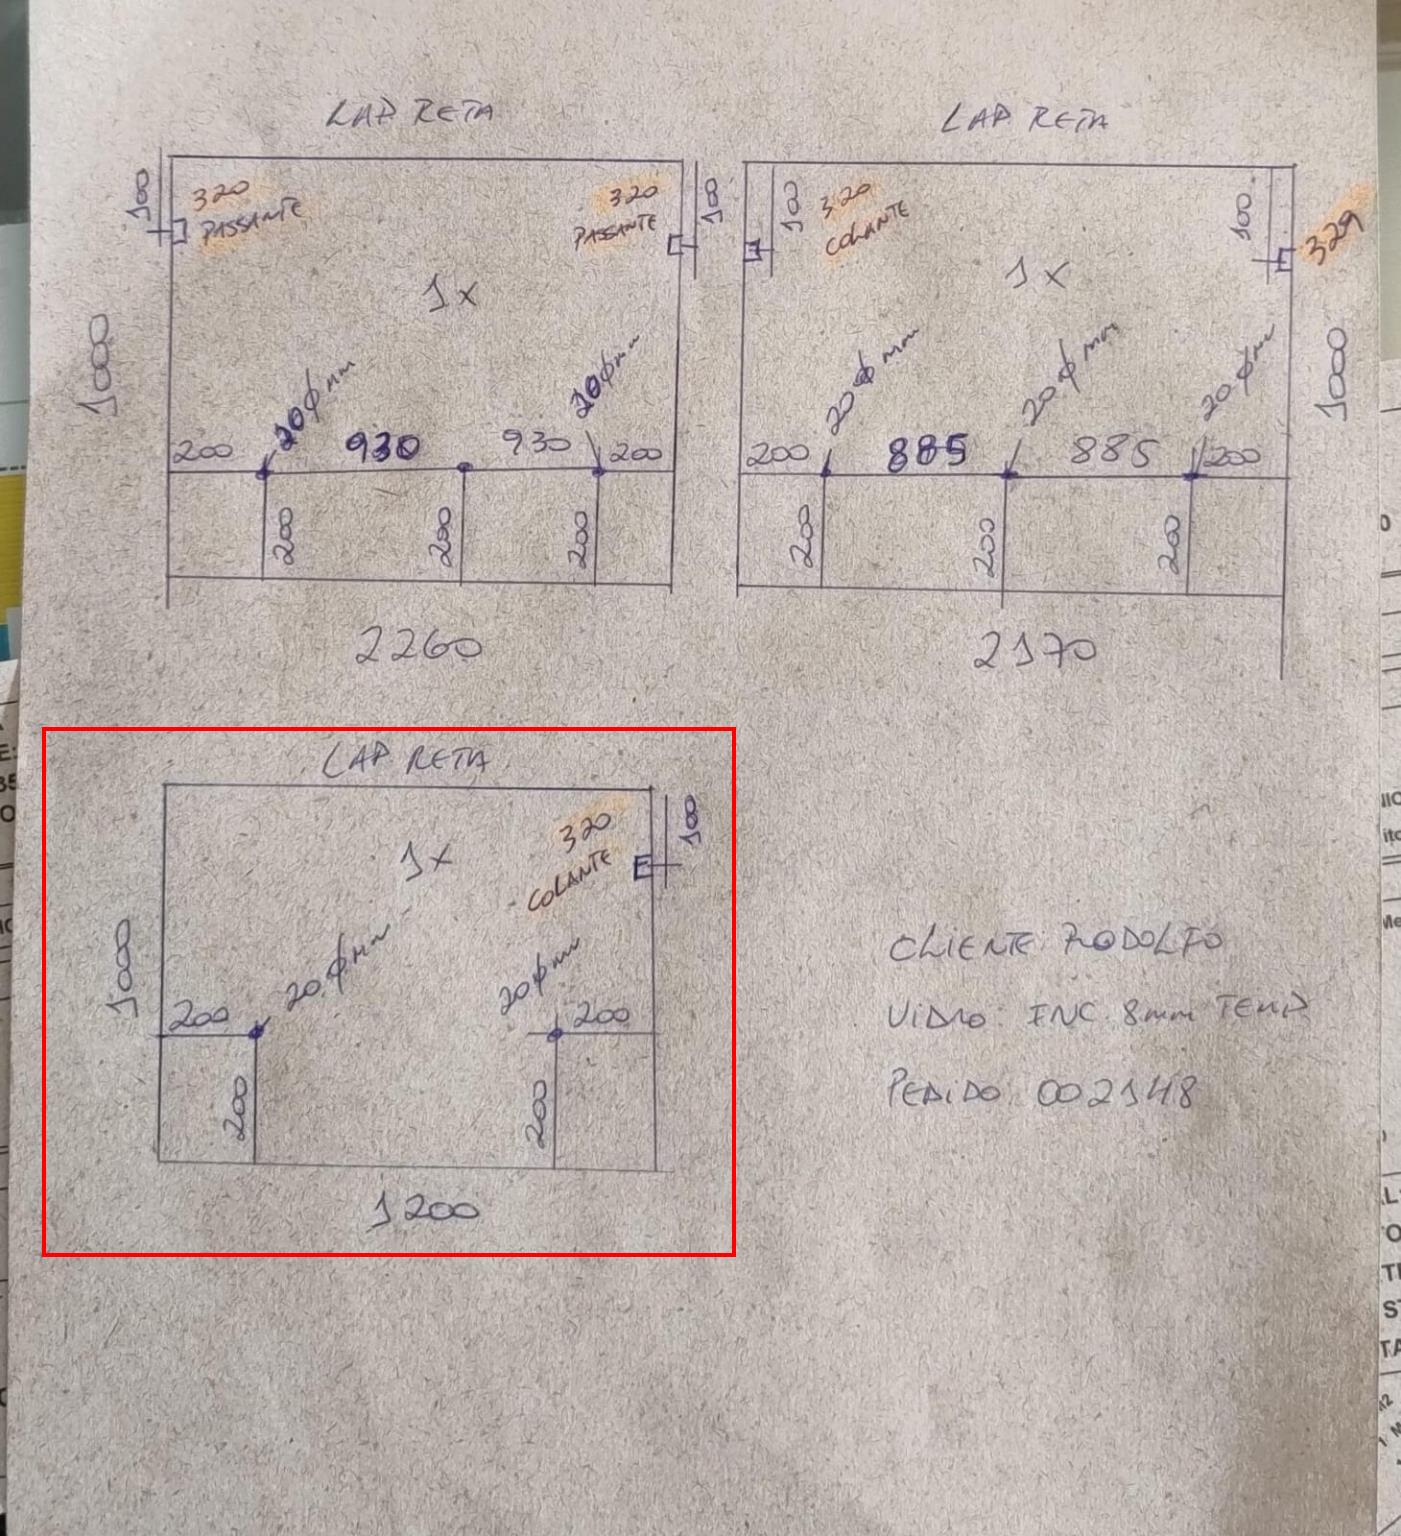 LAP RETA
LAP RETA
100
320
PASSANTE
320
PASSANTE
100
100
320
COLANTE
100
329
1x
1x
1000
20ϕmm
20ϕmm
20ϕmm
20ϕmm
20ϕmm
1000
200
930
930
200
200
885
885
200
200
200
200
200
200
200
2260
2170
LAP RETA
1x
320
COLANTE
100
1000
20ϕmm
20ϕmm
200
200
200
200
1200
CLIENTE: RODOLFO
VIDRO: INC. 8mm TEMP
PEDIDO: 002148